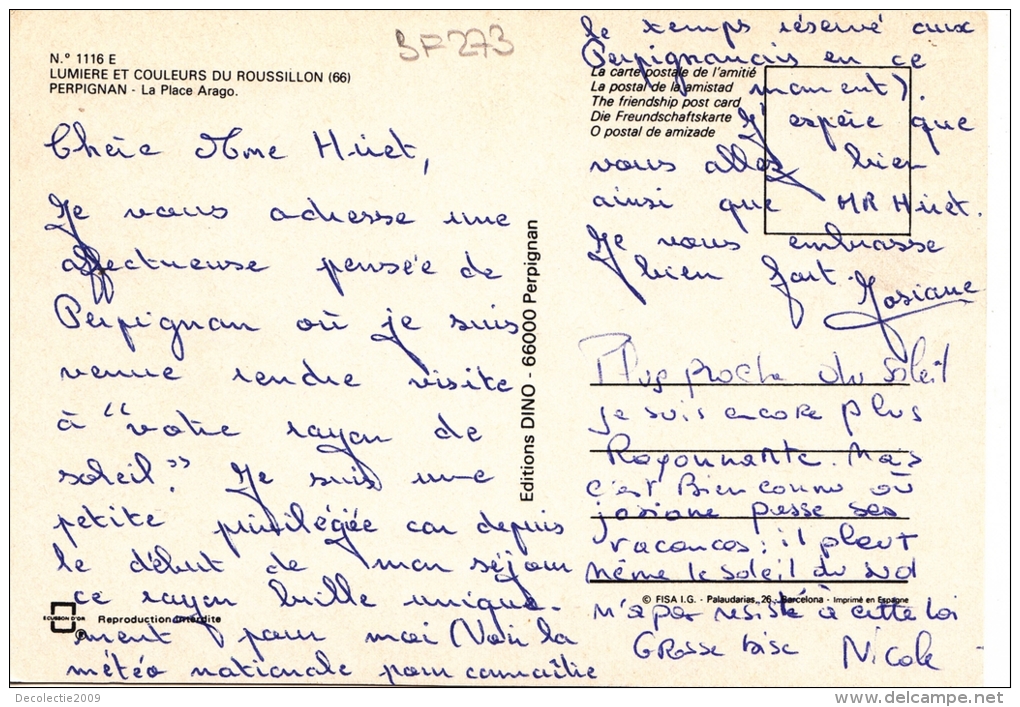 BF 273
N.º 1116 E
LUMIERE ET COULEURS DU ROUSSILLON (66)
PERPIGNAN - La Place Arago.
Chère Mme Huet,
Je vous adresse une
affectueuse pensée de
Perpignan où je suis
venue rendre visite
à "votre rayon de
soleil." Je suis une
petite privilégiée car depuis
le début de mon séjour
ce rayon brille unique-
ment pour moi (Voir la
météo nationale pour connaître
le temps réservé aux
Perpignanais en ce
moment).
J'espère que
vous allez bien
ainsi que MR Huet.
Je vous embrasse
bien fort. Josiane
La carte postale de l'amitié
La postal de la amistad
The friendship post card
Die Freundschaftskarte
O postal de amizade
Editions DINO - 66000 Perpignan
Plus proche du soleil
je suis encore plus
Rayonnante. Mais
c'est Bien connu où
josiane passe ses
vacances : il pleut
même le soleil du sud
n'a pas resisté à cette loi
Grosse bise Nicole
© FISA I.G. - Palaudarias, 26 - Barcelona - Imprimé en Espagne
ECUSSON D'OR
Reproduction Interdite
Decolectie2009
www.delcampe.net